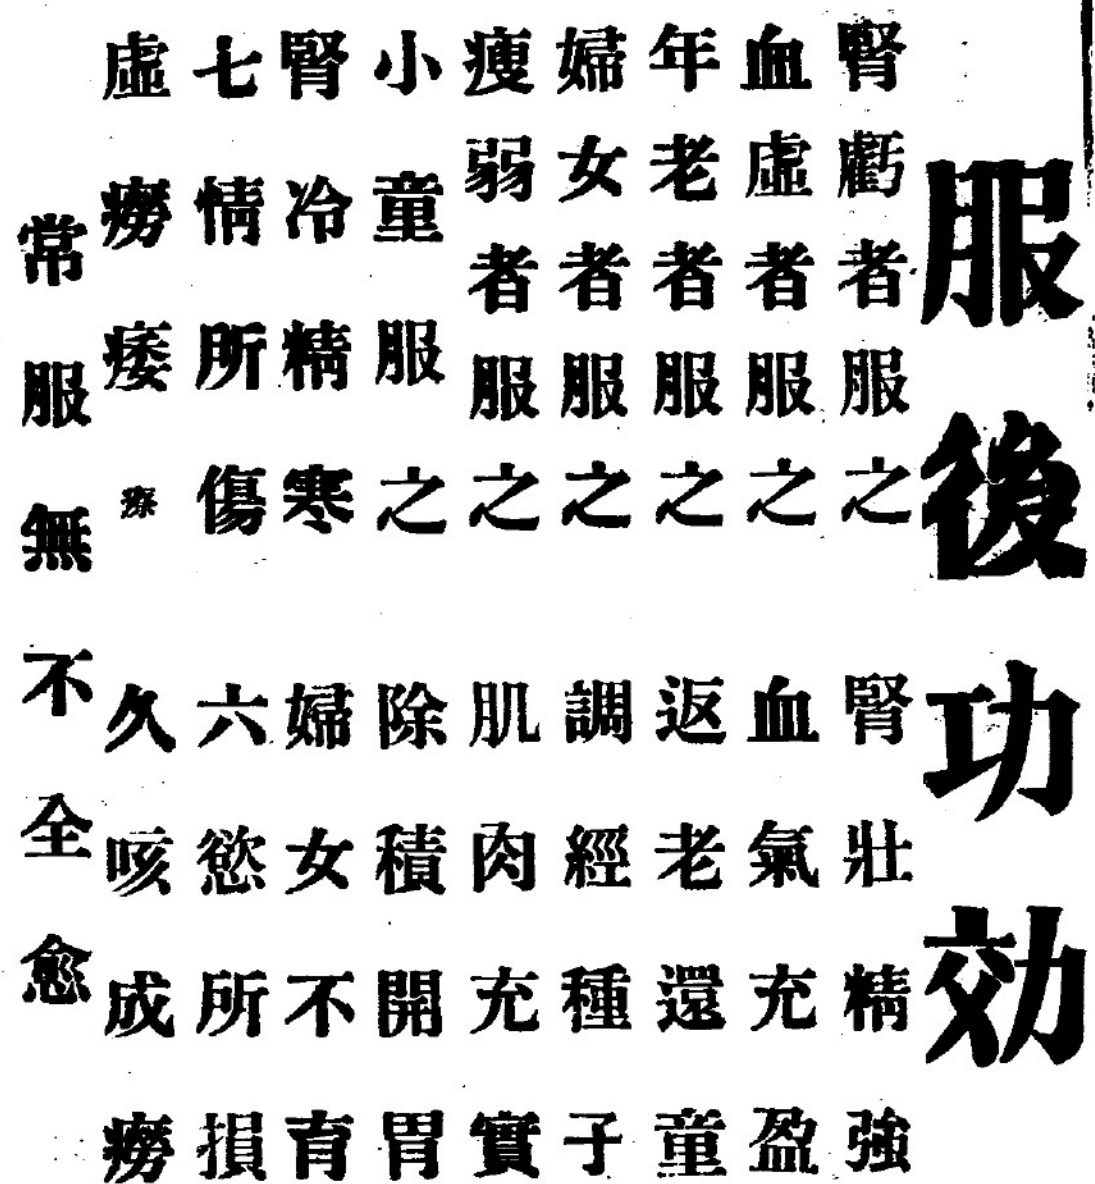 服後功効
腎虧者服之　腎壯精強
血虛者服之　血氣充盈
年老者服之　返老還童
婦女者服之　調經種子
瘦弱者服之　肌肉充實
小童服之　除積開胃
腎冷精寒　婦女不育
七情所傷　六慾所損
虛癆痿瘵　久咳成癆
常服無不全愈